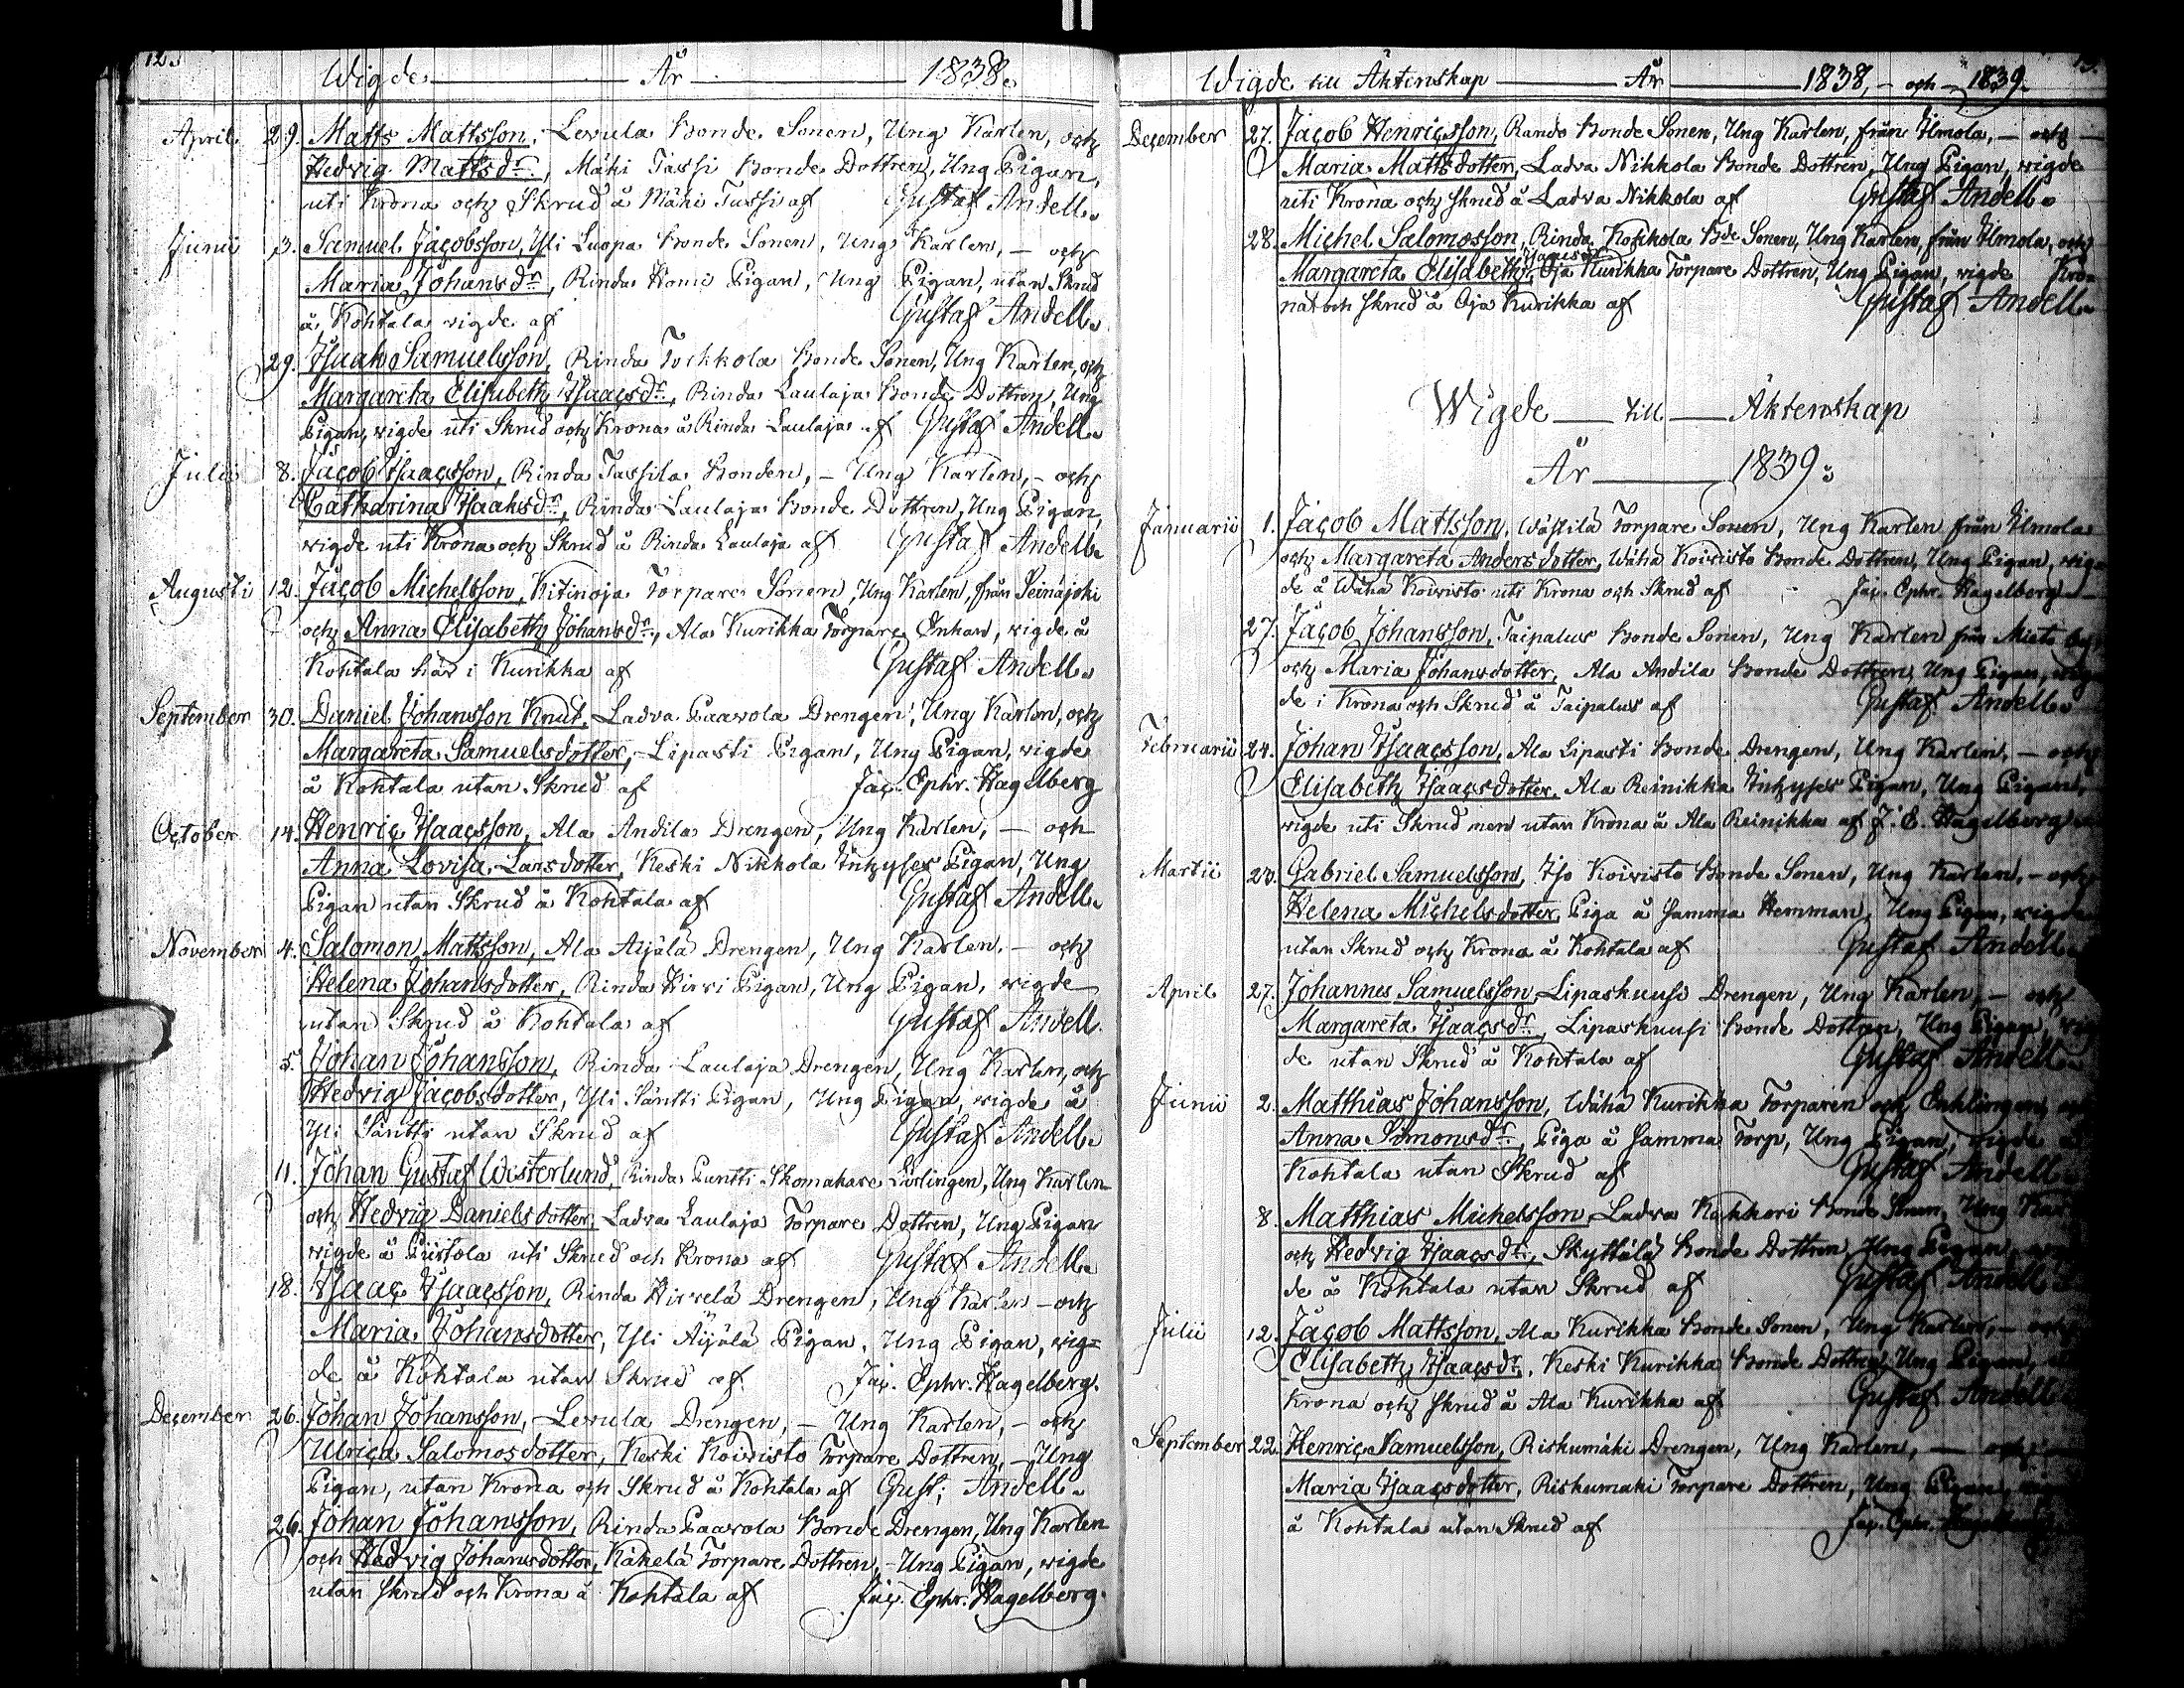 12.
Wigde År 1838.
April 29. Matts Mattsson, Levula Bonde Sonen, Ung Karlen, och
Hedvig Mattsdr, Mäki Jassi Bonde Dottren, Ung Pigan,
uti Krona och Skrud å Mäki Tussi af Gustaf Andell.
Junii 3. Samuel Jacobsson, Yli Luopa Bonde Sonen, Ung Karlen, – och
Maria Johansdr, Rinda Pigan, Ung Pigan, utan Skrud
å Kohtala wigde af Gustaf Andell.
29. Isaak Samuelsson, Rinda Bonde Sonen, Ung Karlen, och
Margareta Elisabeth Isaacsdr, Rinda Laulaja Bonde Dottren, Ung
Pigan, wigde uti Skrud och Krona å Rinda Laulaja af Gustaf Andell.
Julii 8. Jacob Isaacsson, Rinda Tassila Bonden, – Ung Karlen, – och
Catharina Isaaksdr, Rinda Laulaja Bonde Dottren, Ung Pigan,
wigde uti Krona och Skrud å Rinda Laulaja af Gustaf Andell.
Augusti 12. Jacob Michelsson, Kitinoja Torpare Sonen, Ung Karlen, från Seinäjoki
och Anna Elisabeth Johansdr, Ala Kurikka Torpare Enkan, wigde å
Kohtala här i Kurikka af Gustaf Andell.
September 30. Daniel Johansson Knut, Ladva Paavola Drengen, Ung Karlen, och
Margareta Samuelsdotter, Lipasti Pigan, Ung Pigan, wigde
å Kohtala utan Skrud af Jac. Ephr. Hagelberg
October 14. Henric Isaacsson, Ala Andila Drengen, Ung Karlen, – och
Anna Lovisa Larsdotter, Keski Nikkola Inhyses Pigan, Ung
Pigan utan Skrud å Kohtala af Gustaf Andell.
November 4. Salomon Mattsson, Ala Äijälä Drengen, Ung Karlen, – och
Helena Johansdotter, Rinda Hirvi Pigan, Ung Pigan, wigde
utan Skrud å Kohtala af Gustaf Andell
5. Johan Johansson, Rinda Laulaja Drengen, Ung Karlen, och
Hedvig Jacobsdotter, Yli Säntti Pigan, Ung Pigan, wigde å
Yli Säntti utan Skrud af Gustaf Andell.
11. Johan Gustaf Westerlund, Rinda Puntti Skomakare Lärlingen, Ung Karlen
och Hedvig Danielsdotter, Ladva Laulaja Torpare Dottren, Ung Pigan
wigde å Piistola uti Skrud och Krona af Gustaf Andell.
18. Isaac Isaacsson, Rinda Hirvelä Drengen, Ung Karlen – och
Maria Johansdotter, Yli Äijälä Pigan, Ung Pigan, wig=
de å Kohtala utan Skrud af Jac. Ephr. Hagelberg.
December 26. Johan Johansson, Levula Drengen, – Ung Karlen, – och
Ulrica Salomosdotter, Keski Koivisto Torpare Dottren, – Ung
Pigan, utan Krona och Skrud å Kohtala af Gust: Andell.
26. Johan Johansson, Rinda Paavola Bonde Drengen, Ung Karlen
och Hedvig Johansdotter, Käkelä Torpare Dottren, – Ung Pigan, wigde
utan Skrud och Krona å Kohtala af Jac. Ephr. Hagelberg.
13.
Wigde till Äktenskap År 1838, – och – 1839.
December 27. Jacob Henricsson, Rando Bonde Sonen, Ung Karlen, från Ilmola, – och
Maria Mattsdotter, Ladva Nikkola Bonde Dottren, Ung Pigan, wigde
uti Krona och skrud å Ladva Nikkola af Gustaf Andell.
28. Michel Salomosson, Rinda Koskola Bde Sonen, Ung Karlen, från Ilmola, och
Margareta Elisabeth, Oja Kurikka Torpare Dottren, Ung Pigan, wigde Kro-
nat och skrud å Oja Kurikka af Gustaf Andell.
Wigde till Äktenskap
År 1839.
Januarii 1. Jacob Mattsson, Wästilä Torpare Sonen, Ung Karlen från Ilmola
och Margareta Andersdotter, Wähä Koivisto Bonde Dottren, Ung Pigan, wig
de å Wähä Koivisto uti Krona och Skrud af Jac. Ephr. Hagelberg
27. Jacob Johansson, Taipalus Bonde Sonen, Ung Karlen från Mieto by,
och Maria Johansdotter, Ala Andila Bonde Dottren, Ung Pigan, wig
de i Krona och Skrud å Taipalus af Gustaf Andell.
Februarii 24. Johan Isaacsson, Ala Lipasti Bonde Drengen, Ung Karlen, – och
Elisabeth Isaacsdotter, Ala Reinikka Inhyses Pigan, Ung Pigan,
wigde uti Skrud men utan Krona å Ala Reinikka af J. E. Hagelberg
Martii 23. Gabriel Samuelsson, Iso Koivisto Bonde Sonen, Ung Karlen, – och
Helena Michelsdotter, Piga å samma Hemman, Ung Pigan, wigde
utan Skrud och Krona å Kohtala af Gustaf Andell.
April 27. Johannes Samuelsson, Lipaskuusi Drengen, Ung Karlen, – och
Margareta Isaacsdr, Lipaskuusi Bonde Dottren, Ung Pigan, wig
de utan Skrud å Kohtala af Gustaf Andell
Junii 2. Matthias Johansson, Wähä Kurikka Torparen och Enklingen,
Anna Simonsdr, Piga å samma Torp, Ung Pigan, wigde å
Kohtala utan Skrud af Gustaf Andell
8. Matthias Michelsson, Ladva Kakkori Bonde Sonen, Ung Kar
och Hedvig Isaacsdr, Skyttälä Bonde Dottren, Ung Pigan,
de å Kohtala utan Skrud af Gustaf Andell
Julii 12. Jacob Mattsson, Ala Kurikka Bonde Sonen, Ung Karlen, – och
Elisabeth Isaacsdr, Keski Kurikka Bonde Dottren, Ung Pigan,
Krona och skrud å Ala Kurikka af Gustaf Andell
September 22. Henric Samuelsson, Riskumäki Drengen, Ung Karlen, – och
Maria Isaacsdotter, Riskumäki Torpare Dottren, Ung Pigan,
å Kohtala utan Skrud af Jac. Ephr.